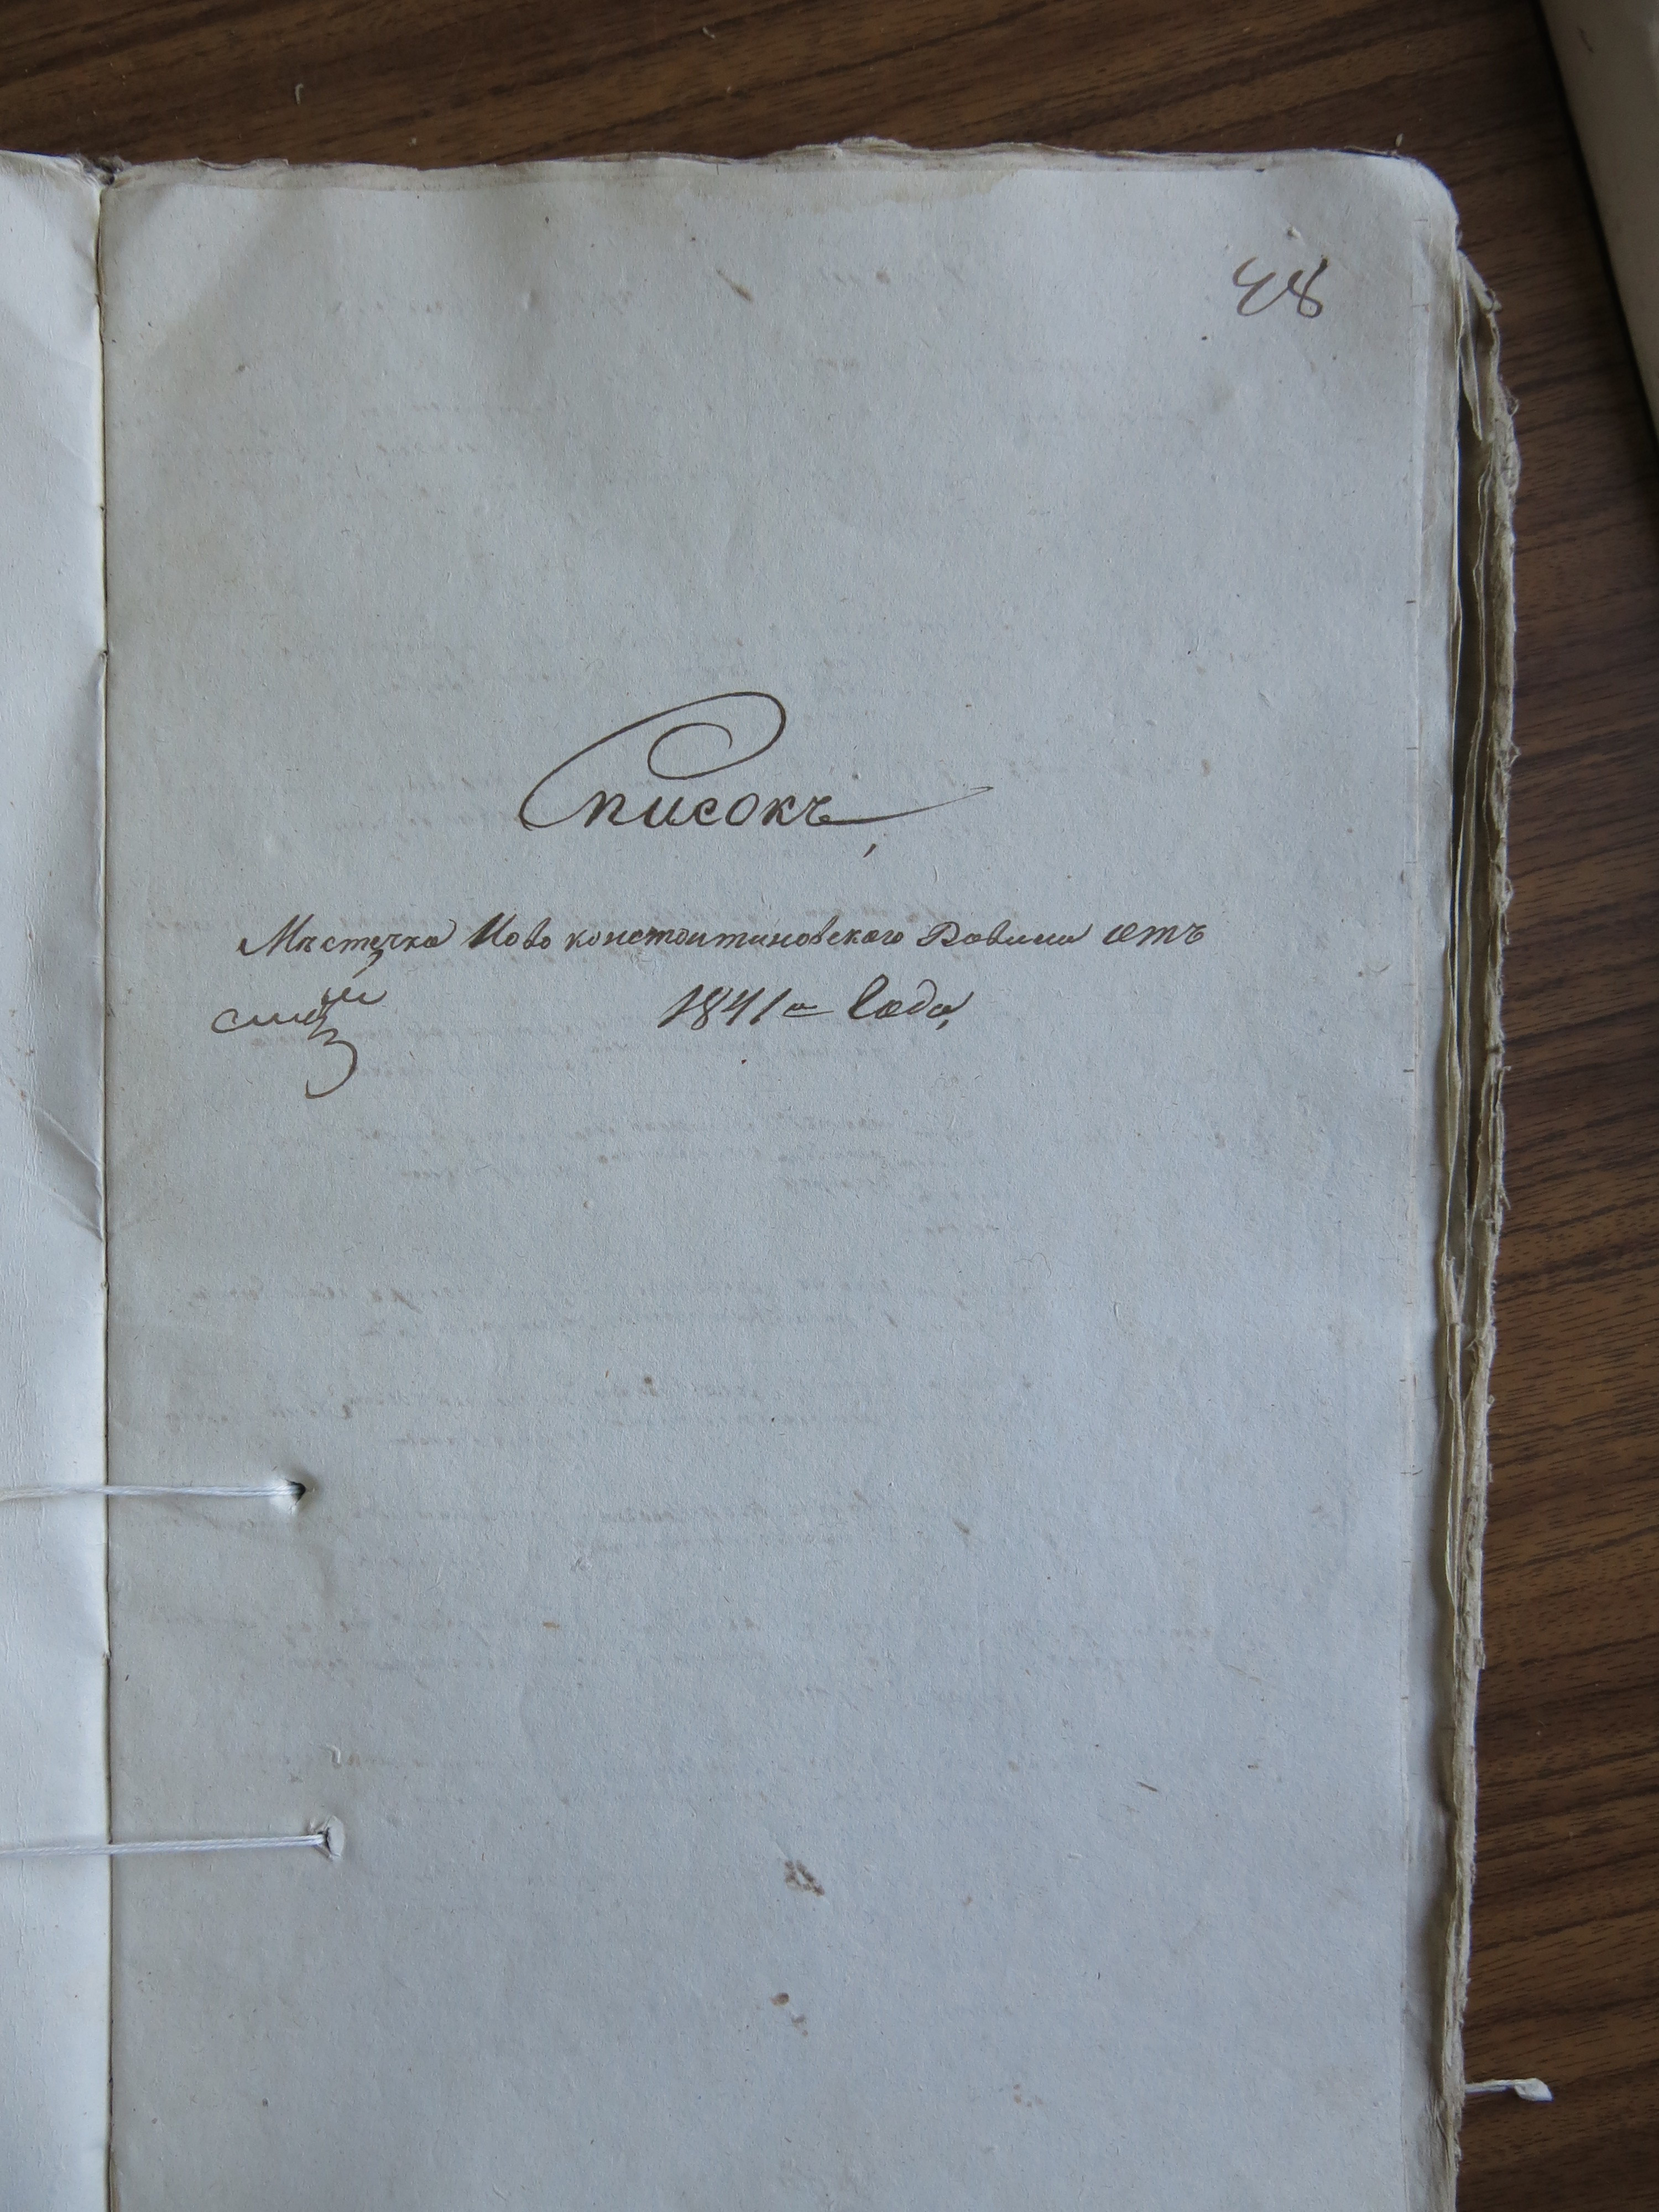 48
Списокъ
Мѣстечка Ново константиновского Равина отъ
1841го Года,